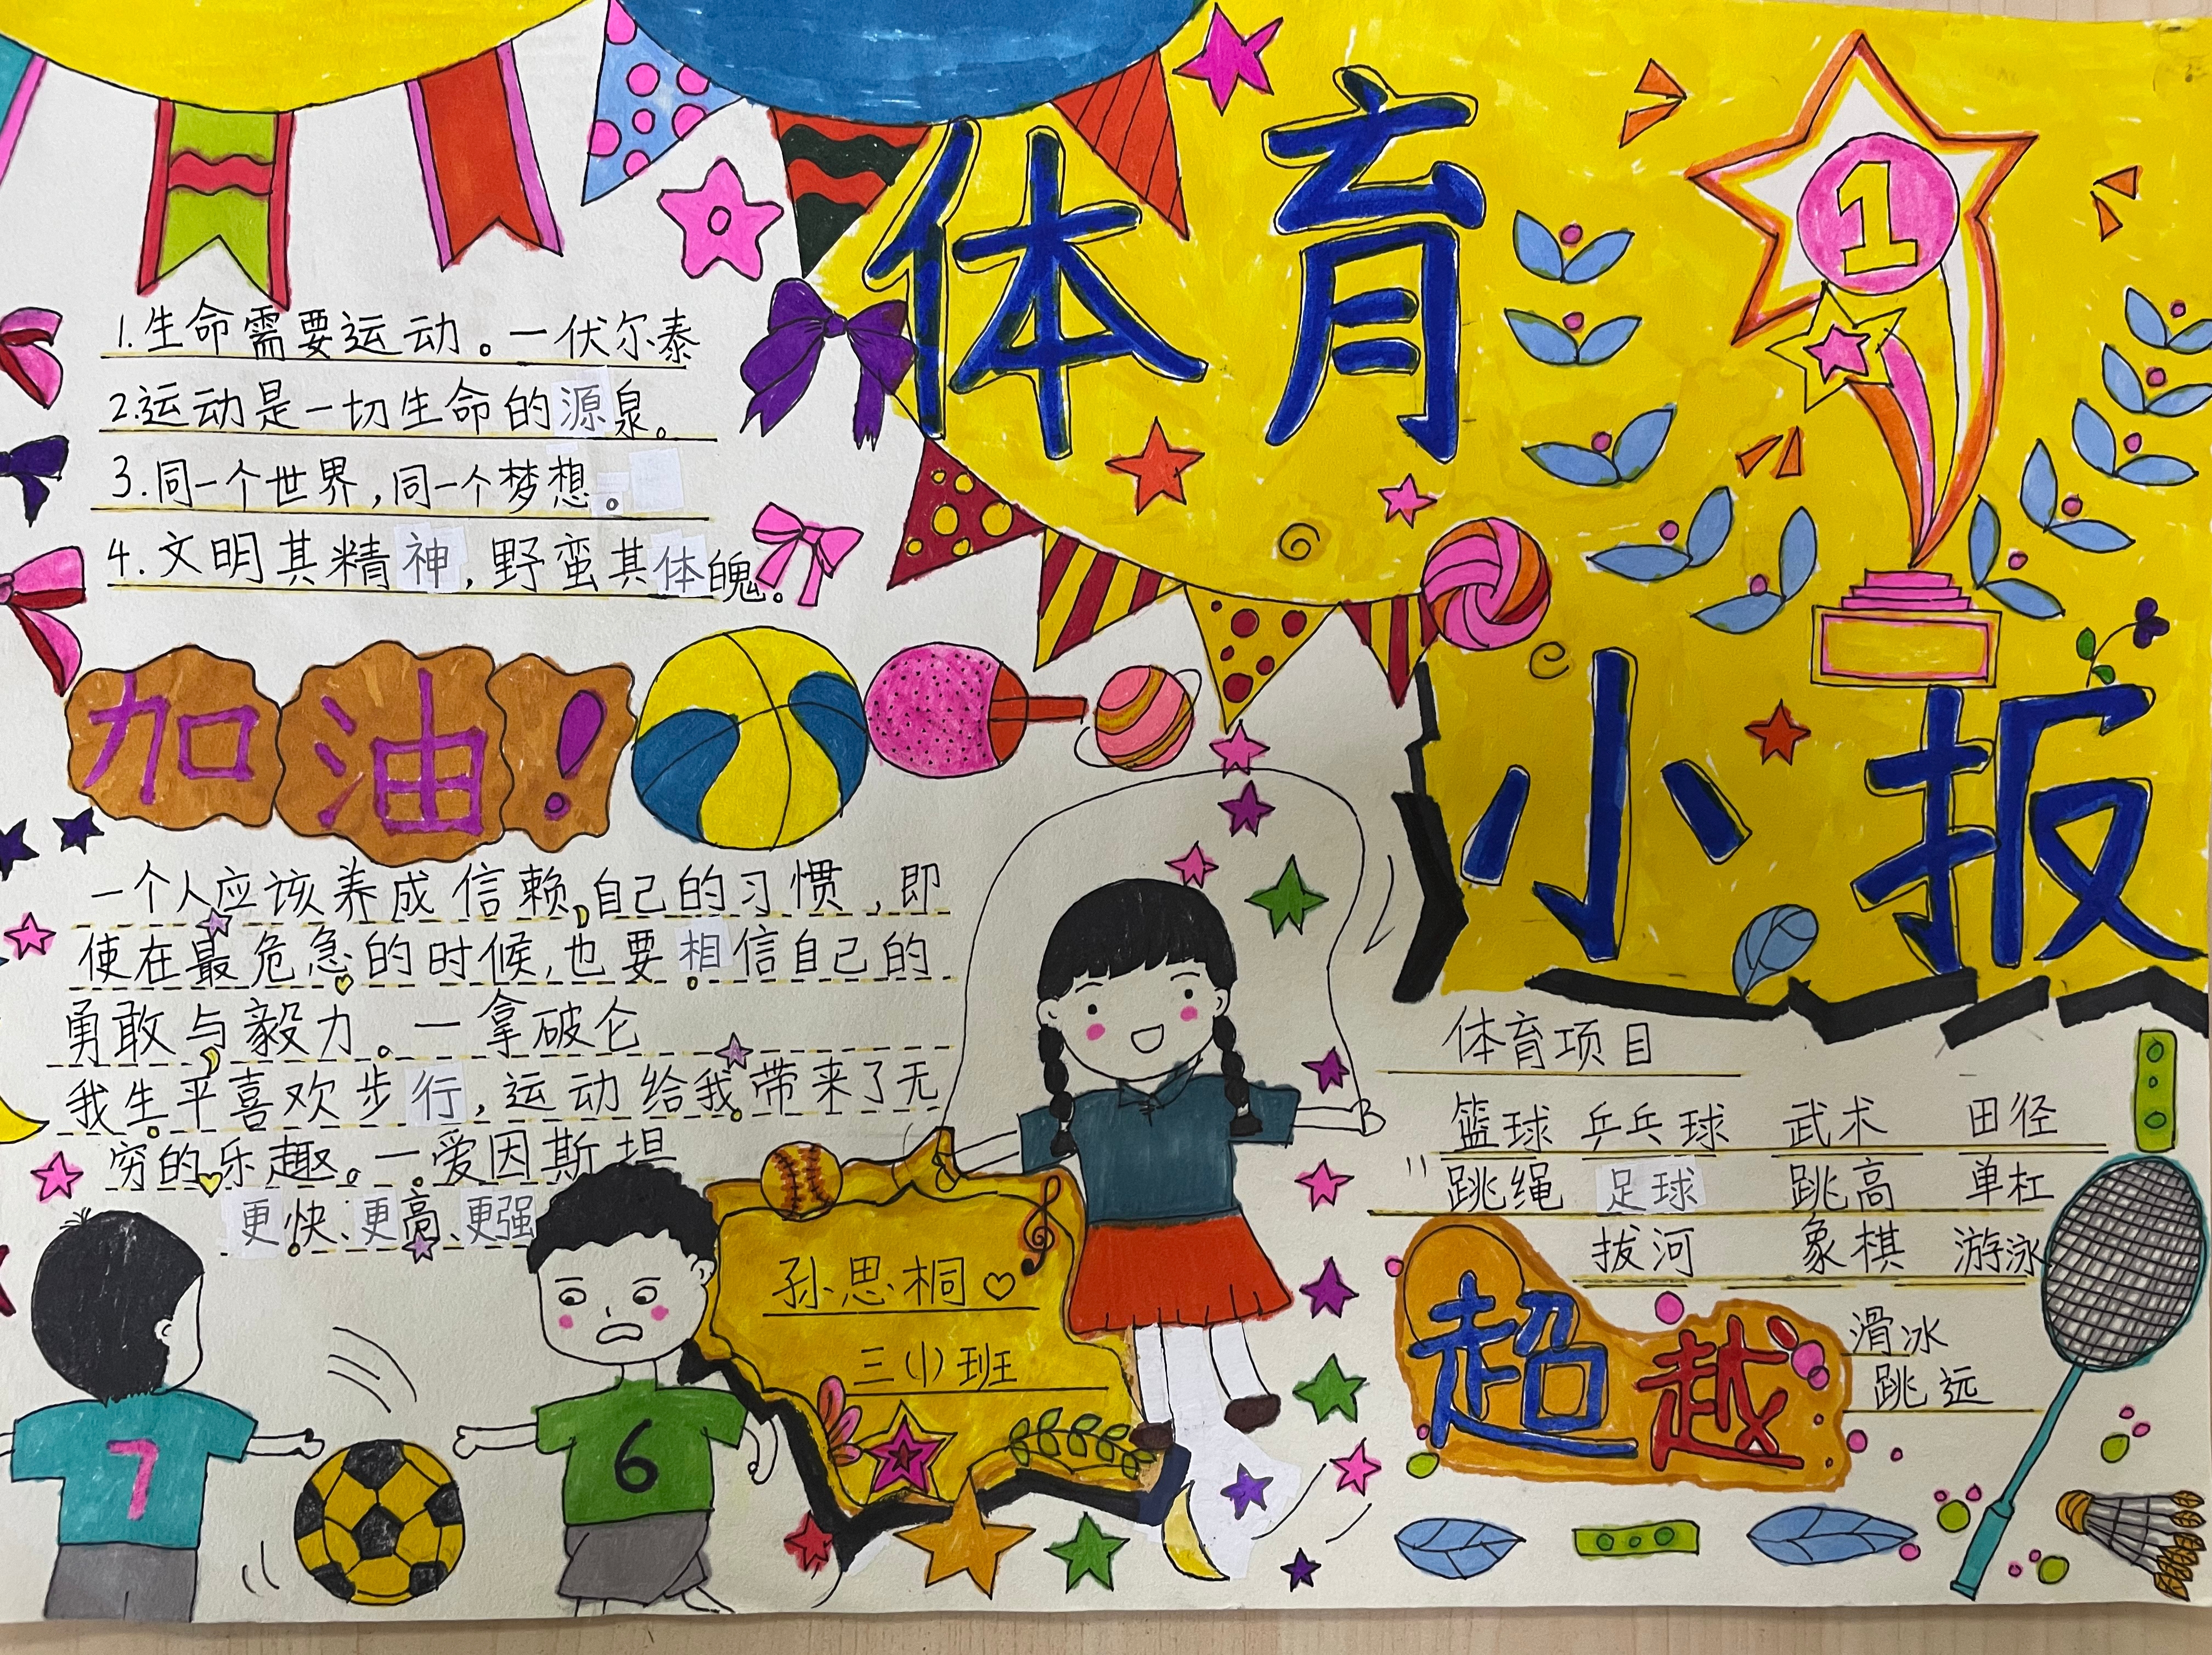 体育
1
小报
1.生命需要运动。一伏尔泰
2.运动是一切生命的源泉。
3.同一个世界,同一个梦想。
4.文明其精神,野蛮其体魄。
加油!
一个人应该养成信赖自己的习惯,即
使在最危急的时候,也要相信自己的
勇敢与毅力。一拿破仑
我生平喜欢步行,运动给我带来了无
穷的乐趣。一爱因斯坦
更快、更高、更强
7
6
孙思桐♡
三(1)班
体育项目
篮球 乒乓球 武术 田径
跳绳 足球 跳高 单杠
拔河 象棋 游泳
滑冰
跳远
超越